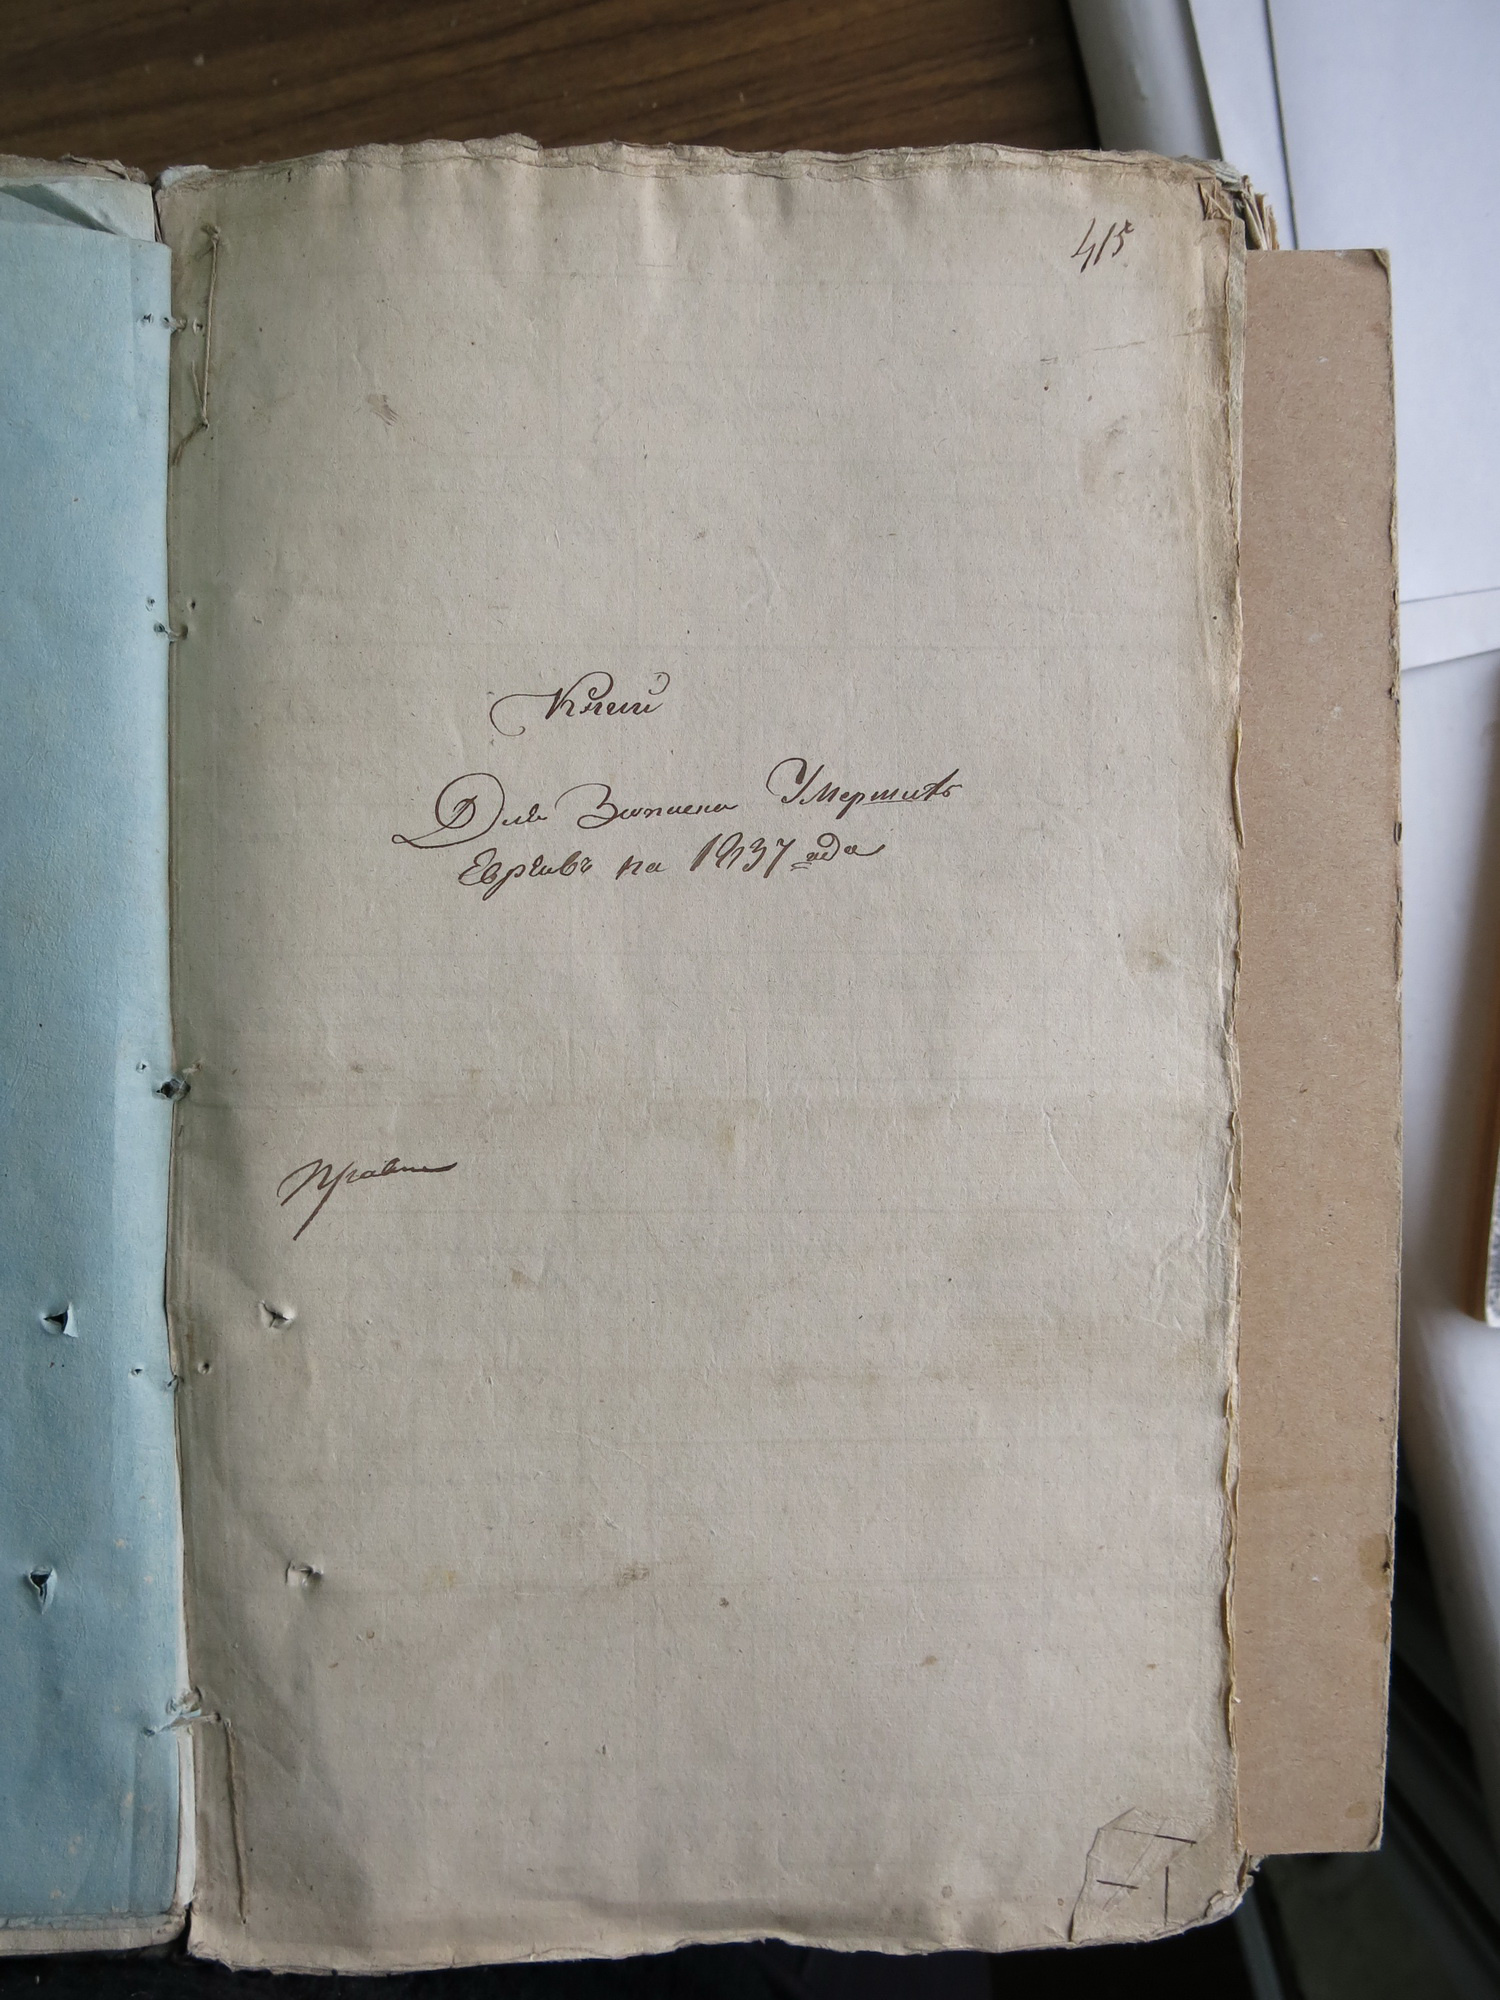 415
Книга
Для Записки Умершихъ
Евреевъ на 1837 года